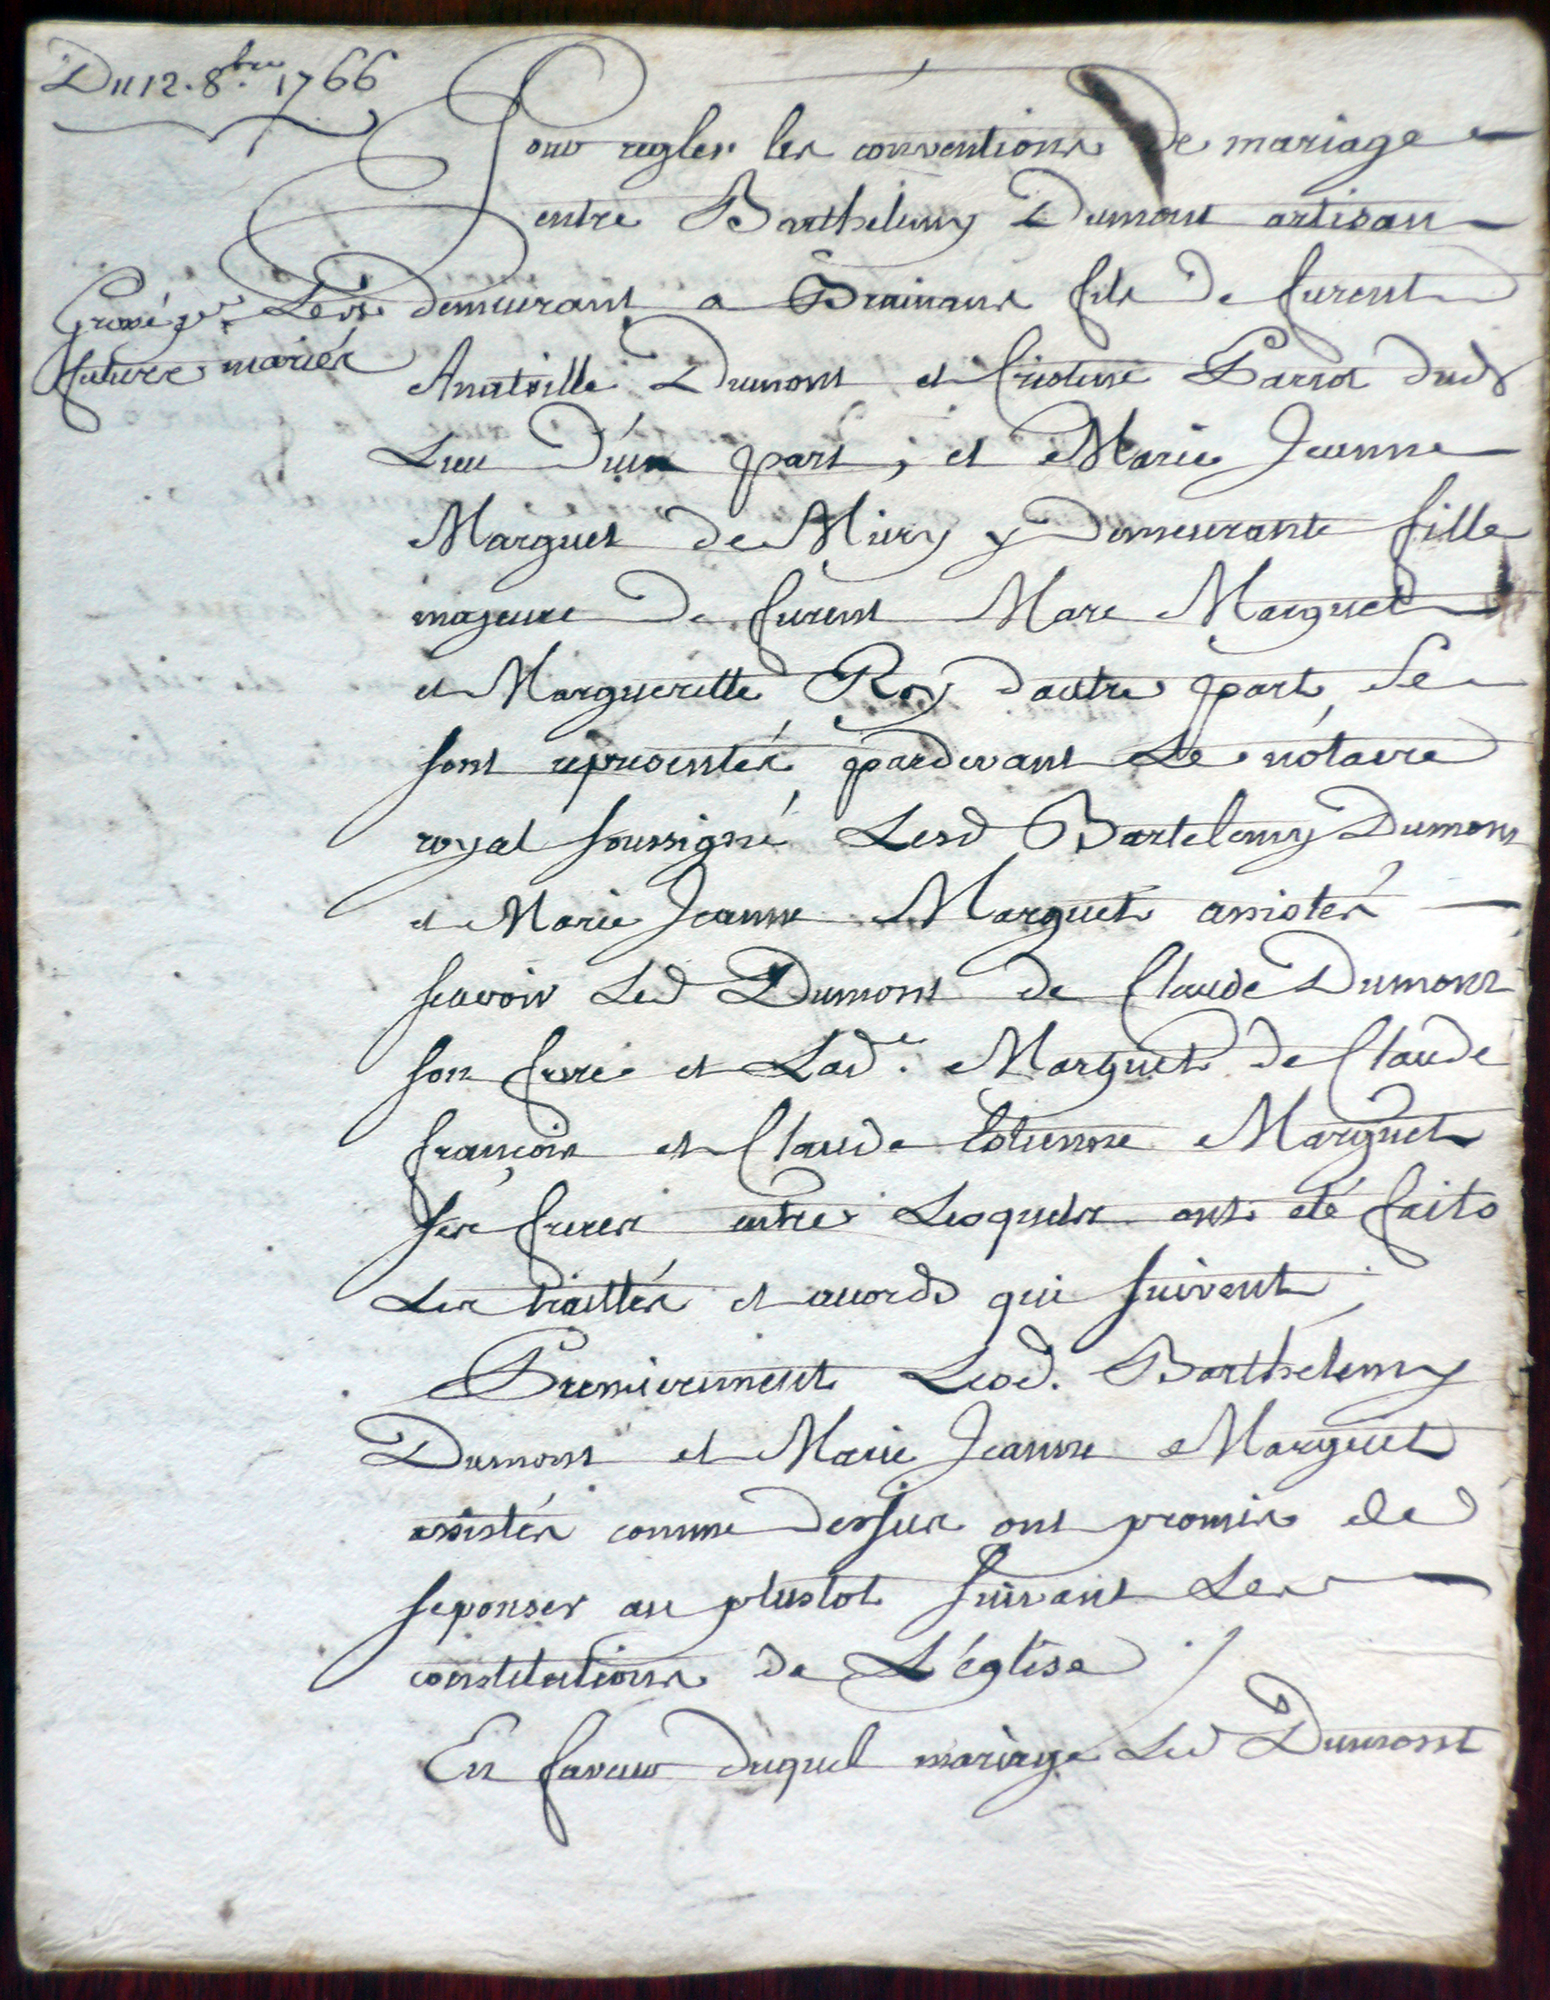 Du 12. 8.bre 1766
Pour regler les conventions de mariage
entre Barthelemy Dumont artisan
Grossé pr. Les
future mariés
demeurant a Brainans fils de furent
Anatoille Dumont et Cristine Parrot dud
Lieu d'un part, et Marie Jeanne
Marguet de Miery y demeurante fille
majeure de furent Marc Marguet
et Marguerite Roy d'autre part, se
sont representés pardevant Le notaire
royal soussigné Lesd Bartelemy Dumont
et Marie Jeanne Marguet assistés
scavoir Led Dumont de Claude Dumont
son frere et Lad.e Marguet de Claude
françois et Claude Etienne Marguet
ses freres entre Lesquels ont eté faits
Les traittés et acords qui suivent,
Premierement Lesd. Barthelemy
Dumont et Marie Jeanne Marguet
assistés comme dessus ont promis de
seponser au plustot suivant Les
constitutions de L'église
En faveur duquel mariage Led Dumont